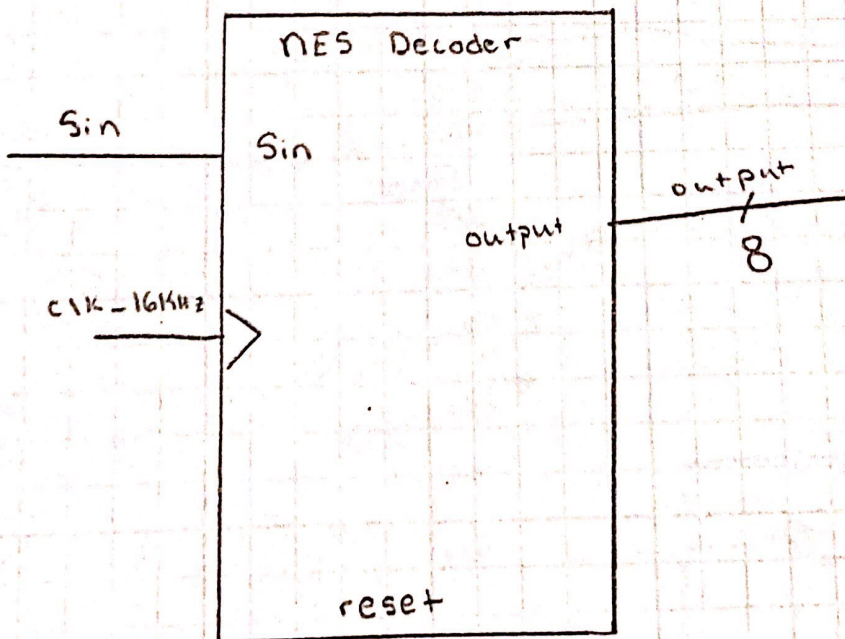 NES Decoder
Sin
Sin
output
output
8
clk_16KHz
reset